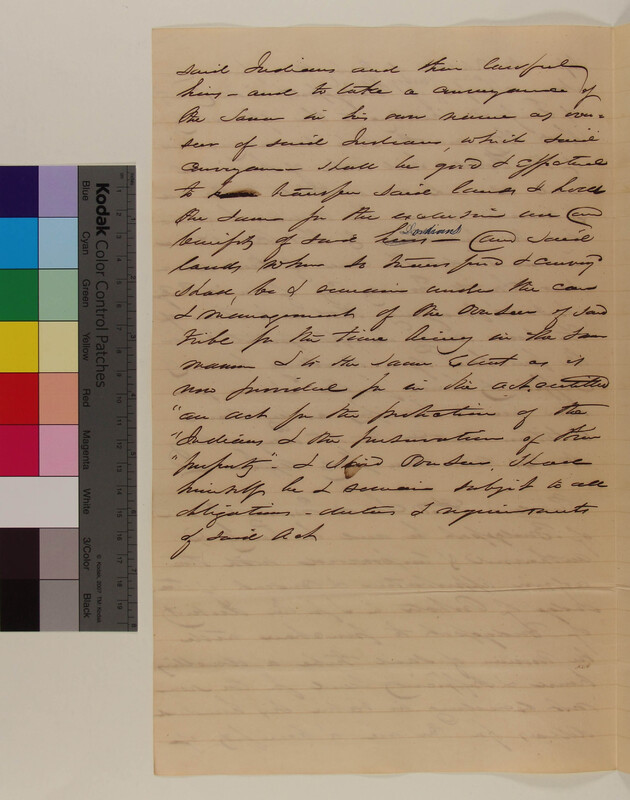 said Indians and their lawful
heirs – and to take a conveyance of
the same in his own name as over=
seer of said Indians, which said
conveyance shall be good & effectual
to transfer said lands & hold
the same for the exclusive use &
benefit of said heirs – Indians and said
lands when so transferred & conveyed
shall be & remain under the care
& management of the Overseer of said
tribe for the time being in the same
manner & to the same extent as is
now provided for in the act entitled
"an act for the protection of the
"Indians & the preservation of their
"property" – & said Overseer shall
himself be & remain subject to all
obligations – duties & requirements
of said Act
Kodak Color Control Patches
Blue
Cyan
Green
Yellow
Red
Magenta
White
3/Color
Black